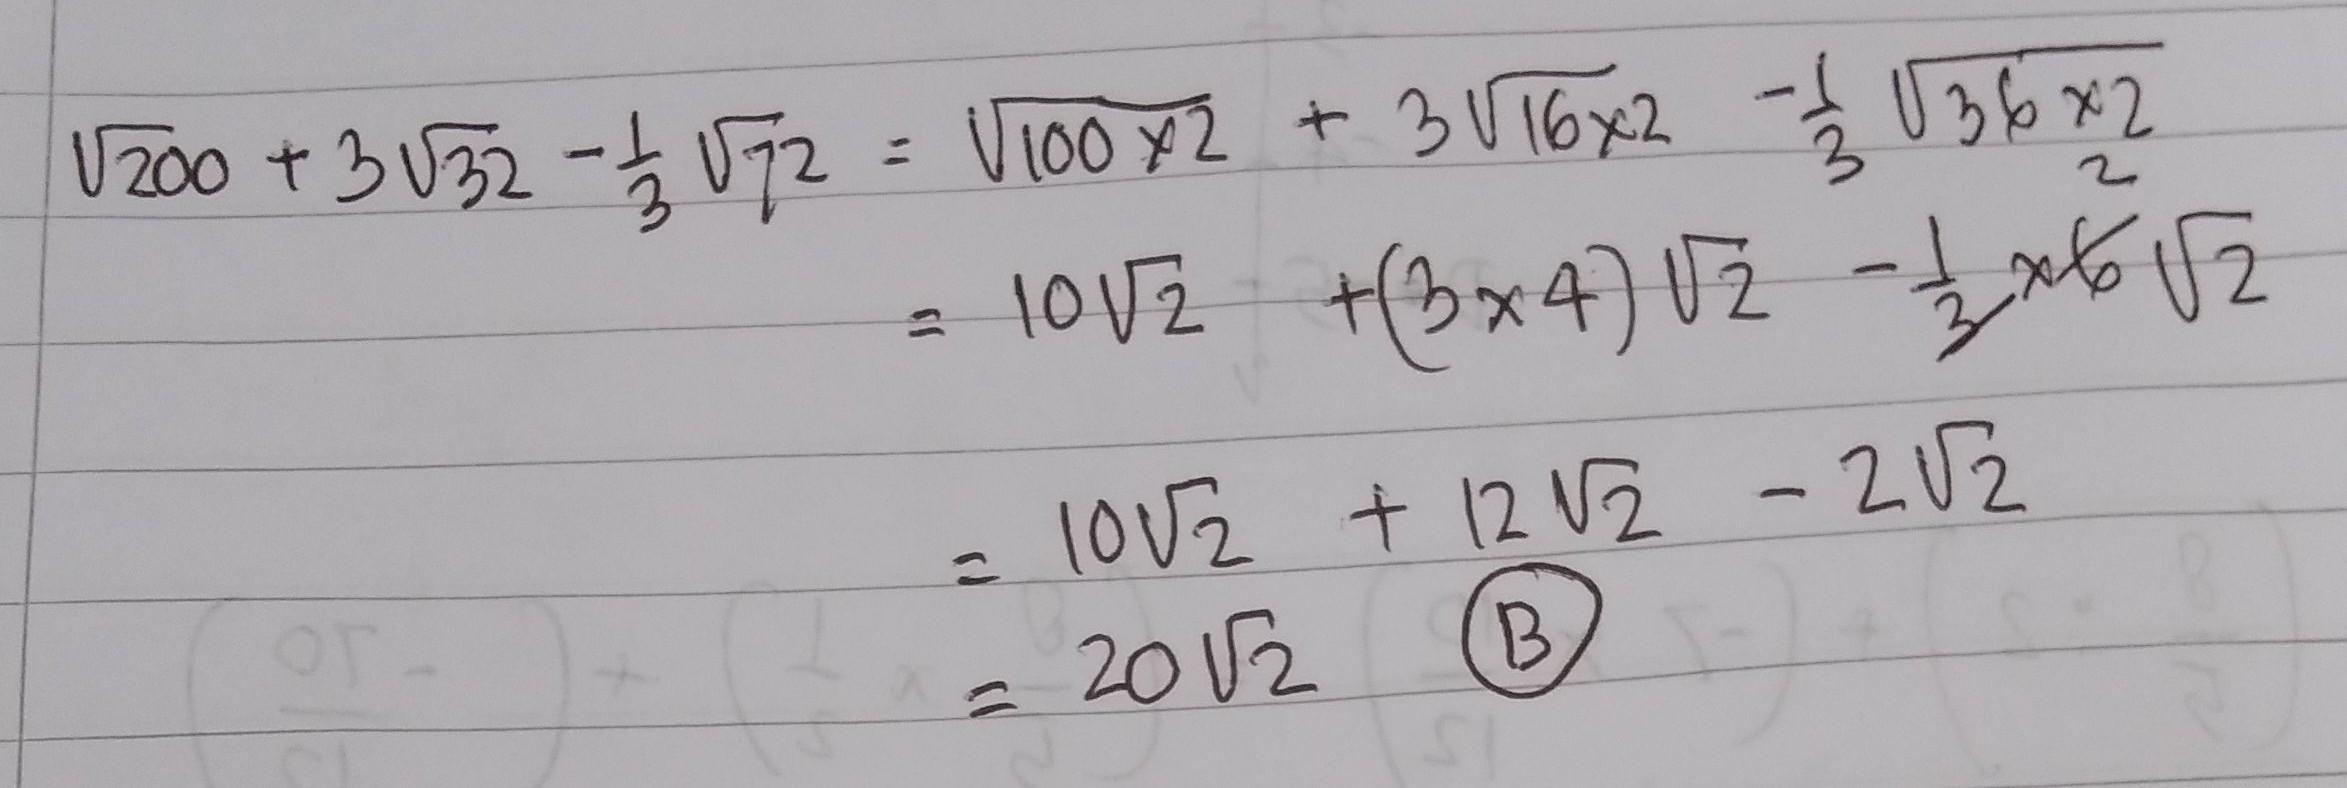 √200 + 3√32 - 1/3 √72 = √100×2 + 3√16×2 - 1/3 √36×2
= 10√2 + (3×4)√2 - 1/3 × 6 √2 2
= 10√2 + 12√2 - 2√2
= 20√2 B